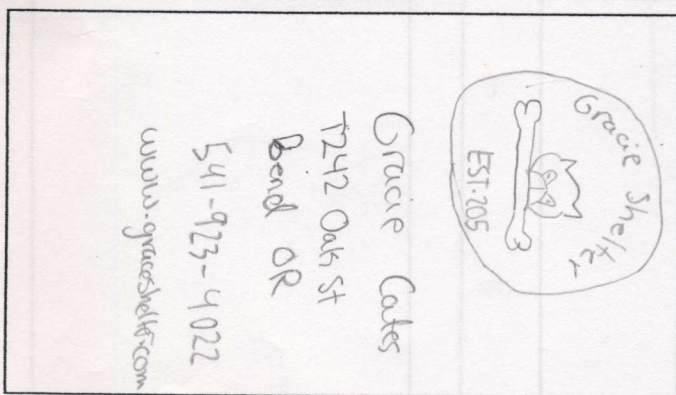 Gracie Shelter
EST. 205
Gracie Cates
T242 Oak St
Bend OR
541-923-4022
www.graceshelter.com